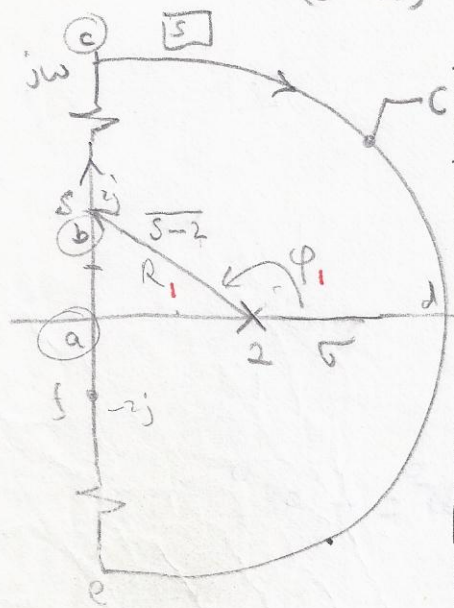 c
S
jω
C
S
2j
S-2
b
R1
φ1
d
a
2
σ
f
-2j
e